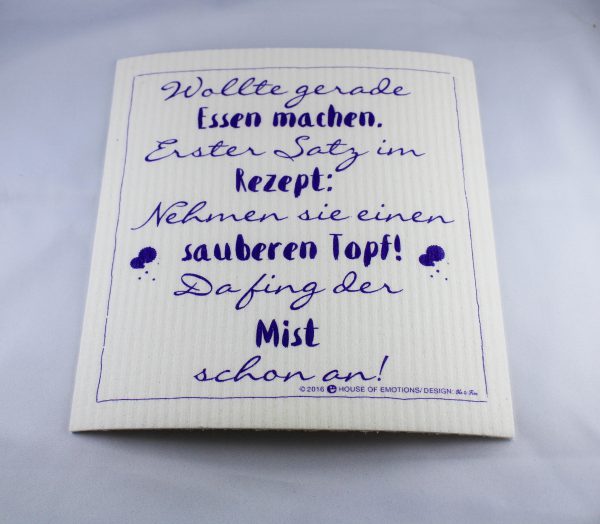 Wollte gerade
Essen machen.
Erster Satz im
Rezept:
Nehmen sie einen
sauberen Topf!
Da fing der
Mist
schon an!
© 2016 HOUSE OF EMOTIONS/ DESIGN: